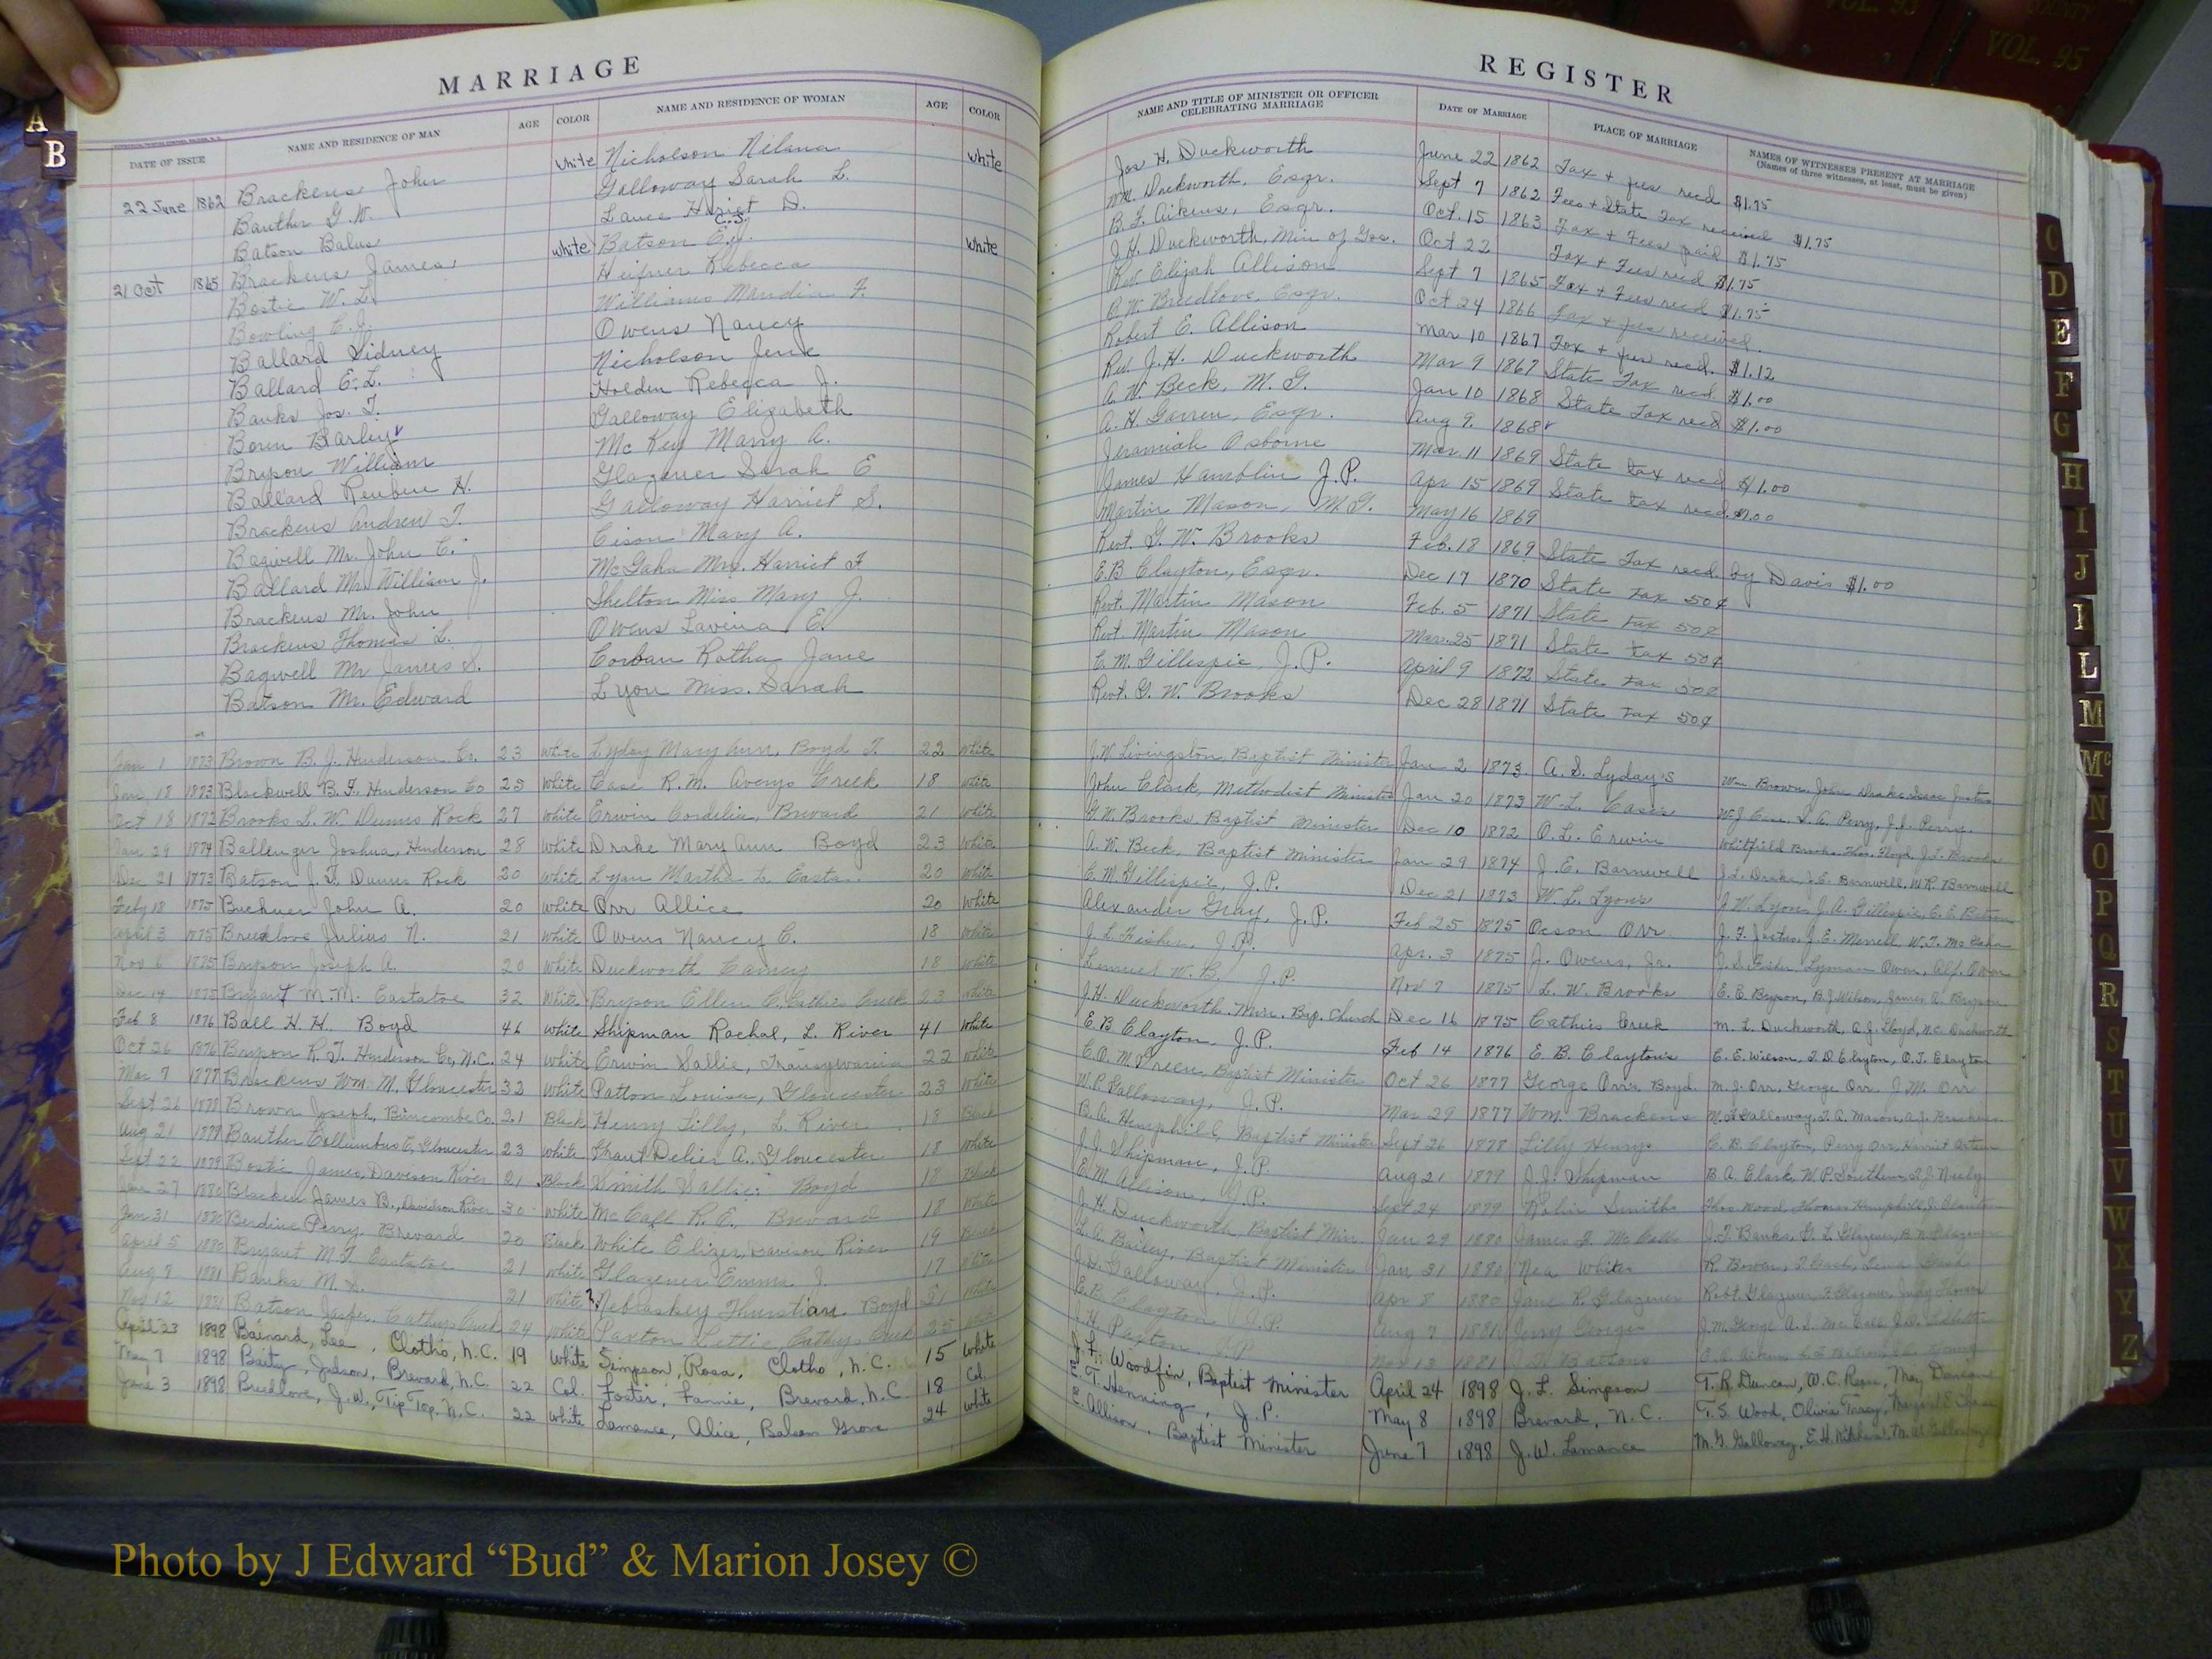 VOL. 93
COUNTY
VOL. 95
MARRIAGE
DATE OF ISSUE NAME AND RESIDENCE OF MAN AGE COLOR NAME AND RESIDENCE OF WOMAN AGE COLOR
22 June 1862 Brackens John White Nicholson Nilana White
Banther G. W. Galloway Sarah L.
Batson Balus Lance Hariet D.
C.S.
21 Oct 1865 Brackens James White Batson E. J. White
Bostic W. L. Heifner Rebecca
Bowling C. J. Williams Mandia F.
Ballard Sidney Owens Nancy
Ballard E. L. Nicholson Jene
Banks Jos. T. Holden Rebecca J.
Boren Barley Galloway Elizabeth
Bryson William McKey Mary A.
Ballard Reuben H. Glazener Sarah E
Brackens Andrew T. Galloway Harriet S.
Bagwell Mr. John C. Cison Mary A.
Ballard Mr. William J. McGaha Mrs. Harriet F
Brackens Mr. John Shelton Miss Mary J.
Brackens Thomas L. Owens Lavina E.
Bagwell Mr James S. Corban Rotha Jane
Batson Mr. Edward Lyon Miss. Sarah
Jan 1 1873 Brown B. J. Henderson Co. 23 White Lyday Mary Ann, Boyd T. 22 White
Jan 18 1873 Blackwell B. F. Henderson Co 25 White Case R. M. Averys Creek 18 White
Oct 18 1872 Brooks L. W. Dunns Rock 27 White Erwin Cordelia, Brevard 21 White
Jan 29 1874 Ballenger Joshua, Henderson 28 White Drake Mary Ann Boyd 23 White
Dec 21 1873 Batson J. F. Dunns Rock 20 White Lyon Martha L. Easta. 20 White
Feby 18 1875 Buckner John A. 20 White Orr Allice 20 White
April 3 1875 Breedlove Julius N. 21 White Owens Nancy C. 18 White
Nov 6 1875 Bryson Joseph A. 20 White Duckworth 18 White
Dec 14 1875 Bryant M. M. Eastatoe 32 White Bryson Ellen C. Cathies Creek 23 White
Feb 8 1876 Ball H. H. Boyd 46 White Shipman Rachal, L. River 41 White
Oct 26 1876 Bryson R. T. Henderson Co, N.C. 24 White Erwin Sallie, Transylvania 22 White
Mar 7 1877 Brackens Wm M. Gloucester 32 White Patton Louisa, Gloucester 23 White
Sept 26 1878 Brown Joseph, Buncombe Co. 21 Black Henry Lilly, L. River 18 Black
Aug 21 1879 Banther Collumbus C. Gloucester 23 White Delia A. Gloucester 18 White
Sept 22 1879 Bostic James, Davison River 21 Black Smith Sallie Boyd 18 Black
Jan 27 1880 Bracken James B., Davidson River 30 White McCall R. E. Brevard 18 White
Jan 31 1880 Berdine Perry, Brevard 20 Black White Elizer, Davison River 19 Black
April 5 1880 Bryant M. T. Eastatoe 21 White Glazener Emma J. 17 White
Aug 7 1881 Banks M. 21 White Nebraskey Thurstian Boyd 21 White
Nov 12 1881 Batson Jasper, Cathys Creek 24 White Paxton Lettie Cathys Creek 25
April 23 1898 Bainard, Lee, Clotho, N.C. 19 White Simpson, Rosa, Clotho, N.C. 15 White
May 7 1898 Baity, Judson, Brevard, N.C. 22 Col. Foster, Fannie, Brevard, N.C. 18 Col.
June 3 1898 Breedlove, J. W., Tip Top, N.C. 22 White Lamance, Alice, Balsam Grove 24 White
REGISTER
NAME AND TITLE OF MINISTER OR OFFICER CELEBRATING MARRIAGE DATE OF MARRIAGE PLACE OF MARRIAGE NAMES OF WITNESSES PRESENT AT MARRIAGE
(Names of three witnesses, at least, must be given)
Jos H. Duckworth June 22 1862 Tax + fees recd $1.75
Wm. Duckworth, Esqr. Sept 7 1862 Fees + State Tax received $1.75
B. F. Aikens, Esqr. Oct. 15 1863 Tax + Fees paid $1.75
J. H. Duckworth, Min of Gos. Oct 22 Tax + Fees recd $1.75
Rev. Elijah Allison Sept 7 1865 Tax + Fees recd $1.75
Breedlove, Esqr. Oct 24 1866 Tax + fees received.
Robert E. Allison Mar 10 1867 Tax + fees recd. $1.12
Rev. J. H. Duckworth Mar 9 1867 State Tax recd $1.00
A. W. Beck, M. G. Jan 10 1868 State Tax recd $1.00
A. H. Garren, Esqr. Aug 9. 1868
Jeramiah Osborne Mar. 11 1869 State tax recd $1.00
James Hamblin J.P. Apr 15 1869 State tax recd. $1.00
Martin Mason, M.G. May 16 1869
Revt. G. W. Brooks Feb. 18 1869 State Tax recd. by Davis $1.00
E. B Clayton, Esqr. Dec 17 1870 State tax 50¢
Revt. Martin Mason Feb. 5 1871 State tax 50¢
Revt. Martin Mason Mar. 25 1871 State tax 50¢
C. M. Gillespie, J.P. April 9 1872 State tax 50¢
Revt. G. W. Brooks Dec 28 1871 State tax 50¢
J. W. Livingston, Baptist Minister Jan 2 1873. A. S. Lyday's Wm. Brown, John Drake, Isaac Justus
John Clark, Methodist Minister Jan 20 1873 W. L. Case's W. J. Case, S. C. Perry, J. J. Perry
G. W. Brooks, Baptist Minister Dec 10 1872 O. L. Erwin Whitfield Brooks, Thos. Floyd, J. L. Brooks
A. W. Beck, Baptist Minister Jan 29 1874 J. E. Barnwell J. L. Drake, J. E. Barnwell, W. R. Barnwell
C. M Gillispie, J.P. Dec 21 1873 W. L. Lyons J. W. Lyon, J. A. Gillespie, E. E. Batson
Alexander Gray, J.P. Feb 25 1875 Ocson Orr J. F. Justus, J. E. Merrell, W. T. McGaha
J. L. Fisher, J.P. Apr. 3 1875 J. Owens, Jr. J. S. Fisher, Lyman Owen, Alf. Owen
Lemuel W. B. J.P. Nov 7 1875 L. W. Brooks E. E. Bryson, B. J. Wilson, James A. Bryson
J. H. Duckworth, Min. Bap. Church Dec 16 1875 Cathies Creek M. L. Duckworth, A. J. Loyd, N. C. Duckworth
E. B Clayton, J.P. Feb 14 1876 E. B. Clayton's E. E. Wilson, T. D Clayton, O. T. Clayton
Green, Baptist Minister Oct 26 1877 George Orrs Boyd. M. J. Orr, George Orr, J. M. Orr
W. P. Galloway, J.P. Mar 29 1877 Wm. Brackens W. F. Galloway, T. A. Mason, A. J. Brackens
B. A. Hemphill, Baptist Minister Sept 26 1878 Lilly Henrys E. B. Clayton, Perry Orr, Harriet
J. J. Shipman, J.P. Aug 21 1879 J. J. Shipman B. A. Clark, W. P. Southern,
E. M. Allison, J.P. Sept 24 1879 Smiths Thos Wood, Thomas Hemphill,
J. H. Duckworth, Baptist Min. Jan 29 1880 James F. McCalls J. F. Banks, G. L. Glazener,
L. A. Bailey, Baptist Minister Jan 31 1880 White R. Bowen,
J. D. Galloway, J.P. Apr 8 1880 Jane R. Glazener Robt. Glazener,
E. B. Clayton J.P. Aug 7 1881 Jerry Georges J. M. George
J. H. Paxton, J.P. Nov 13 1881 Batsons
J. F. Woodfin, Baptist Minister April 24 1898 J. L. Simpson T. R. Duncan, W. C. Reese, May Duncan
E. T. Henning, J.P. May 8 1898 Brevard, N.C. T. S. Wood, Olivia Tracy,
E. Allison, Baptist Minister June 7 1898 J. W. Lamance M. G. Galloway,
A
B
C
D
E
F
G
H
I
J
K
L
M
Mc
N
O
P
Q
R
S
T
U
V
W
X
Y
Z
Photo by J Edward “Bud” & Marion Josey ©